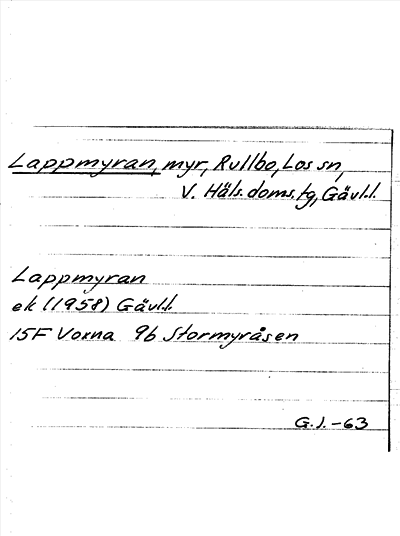 Lappmyran, myr, Rullbo, Los sn,
V. Häls. doms. tg, Gävl.l.
Lappmyran
ek (1958) Gävl.l.
15F Voxna 9b Stormyråsen
G.J.-63